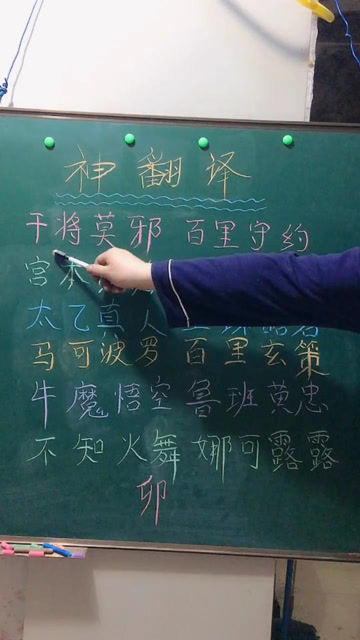 神翻译
干将莫邪 百里守约
宫本
太乙真人
马可波罗 百里玄策
牛魔悟空 鲁班黄忠
不知火舞 娜可露露
卯